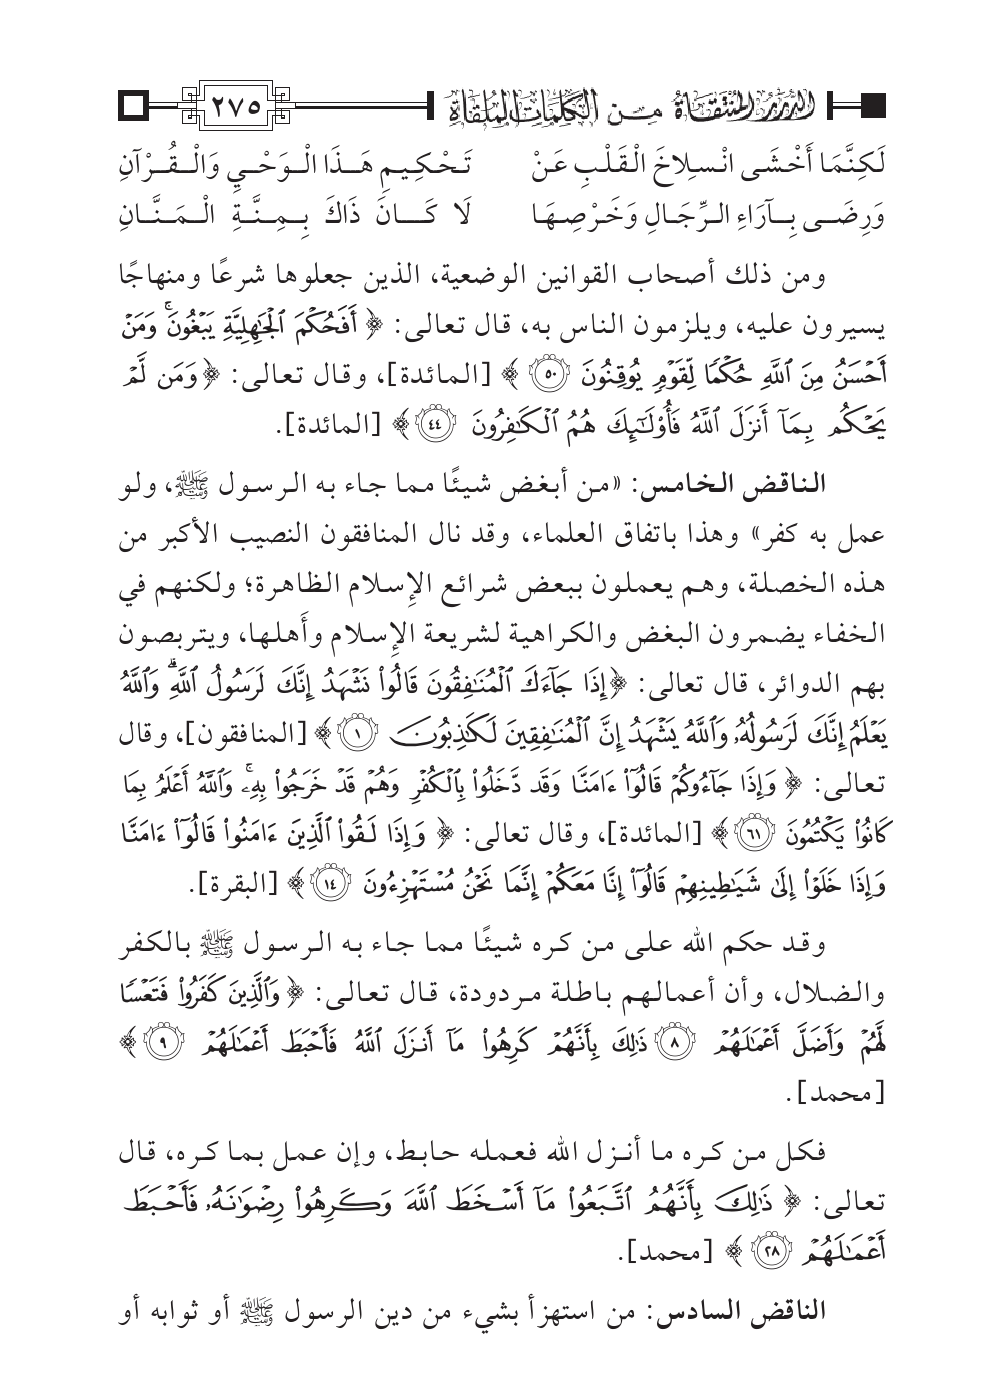 الدرر المنتقاة من الكلمات الملقاة ٢٧٥
لَكِنَّمَا أَخْشَى انْسِلاخَ الْقَلْبِ عَنْ تَحْكِيمِ هَذَا الْوَحْيِ وَالْقُرْآنِ
وَرِضَى بِآرَاءِ الرِّجَالِ وَخَرْصِهَا لَا كَانَ ذَاكَ بِمِنَّةِ الْمَنَّانِ
ومن ذلك أصحاب القوانين الوضعية، الذين جعلوها شرعًا ومنهاجًا
يسيرون عليه، ويلزمون الناس به، قال تعالى: ﴿ أَفَحُكْمَ ٱلْجَٰهِلِيَّةِ يَبْغُونَ ۚ وَمَنْ
أَحْسَنُ مِنَ ٱللَّهِ حُكْمًا لِّقَوْمٍ يُوقِنُونَ ٥٠ ﴾ [المائدة]، وقال تعالى: ﴿ وَمَن لَّمْ
يَحْكُم بِمَآ أَنزَلَ ٱللَّهُ فَأُو۟لَٰٓئِكَ هُمُ ٱلْكَٰفِرُونَ ٤٤ ﴾ [المائدة].
الناقض الخامس: «من أبغض شيئًا مما جاء به الرسول ﷺ، ولو
عمل به كفر» وهذا باتفاق العلماء، وقد نال المنافقون النصيب الأكبر من
هذه الخصلة، وهم يعملون ببعض شرائع الإِسلام الظاهرة؛ ولكنهم في
الخفاء يضمرون البغض والكراهية لشريعة الإِسلام وأَهلها، ويتربصون
بهم الدوائر، قال تعالى: ﴿إِذَا جَآءَكَ ٱلْمُنَٰفِقُونَ قَالُوا۟ نَشْهَدُ إِنَّكَ لَرَسُولُ ٱللَّهِ ۗ وَٱللَّهُ
يَعْلَمُ إِنَّكَ لَرَسُولُهُۥ وَٱللَّهُ يَشْهَدُ إِنَّ ٱلْمُنَٰفِقِينَ لَكَٰذِبُونَ ١ ﴾ [المنافقون]، وقال
تعالى: ﴿ وَإِذَا جَآءُوكُمْ قَالُوٓا۟ ءَامَنَّا وَقَد دَّخَلُوا۟ بِٱلْكُفْرِ وَهُمْ قَدْ خَرَجُوا۟ بِهِۦ ۚ وَٱللَّهُ أَعْلَمُ بِمَا
كَانُوا۟ يَكْتُمُونَ ٦١ ﴾ [المائدة]، وقال تعالى: ﴿ وَإِذَا لَقُوا۟ ٱلَّذِينَ ءَامَنُوا۟ قَالُوٓا۟ ءَامَنَّا
وَإِذَا خَلَوْا۟ إِلَىٰ شَيَٰطِينِهِمْ قَالُوٓا۟ إِنَّا مَعَكُمْ إِنَّمَا نَحْنُ مُسْتَهْزِءُونَ ١٤ ﴾ [البقرة].
وقد حكم الله على من كره شيئًا مما جاء به الرسول ﷺ بالكفر
والضلال، وأن أعمالهم باطلة مردودة، قال تعالى: ﴿ وَٱلَّذِينَ كَفَرُوا۟ فَتَعْسًا
لَّهُمْ وَأَضَلَّ أَعْمَٰلَهُمْ ٨ ذَٰلِكَ بِأَنَّهُمْ كَرِهُوا۟ مَآ أَنزَلَ ٱللَّهُ فَأَحْبَطَ أَعْمَٰلَهُمْ ٩ ﴾
[محمد].
فكل من كره ما أنزل الله فعمله حابط، وإن عمل بما كره، قال
تعالى: ﴿ ذَٰلِكَ بِأَنَّهُمُ ٱتَّبَعُوا۟ مَآ أَسْخَطَ ٱللَّهَ وَكَرِهُوا۟ رِضْوَٰنَهُۥ فَأَحْبَطَ
أَعْمَٰلَهُمْ ٢٨ ﴾ [محمد].
الناقض السادس: من استهزأ بشيء من دين الرسول ﷺ أو ثوابه أو